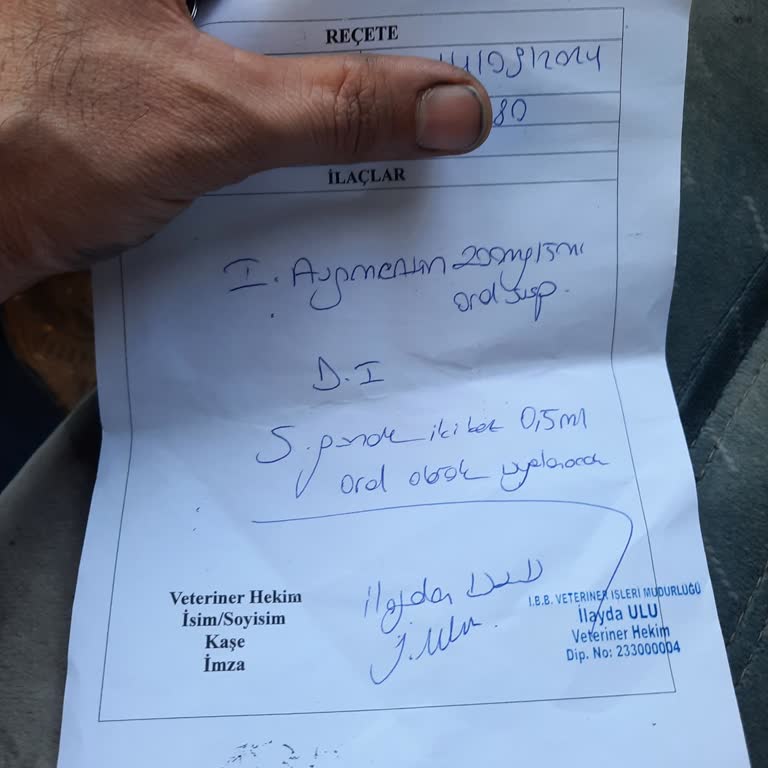 REÇETE
14/09/2024
80
İLAÇLAR
I. Augmentin 200mg/5ml
oral susp.
D.I
S. günde iki kez 0,5ml
oral olarak uygulanacak
Veteriner Hekim
İsim/Soyisim
Kaşe
İmza
İlayda ULU
İ.Ulu.
İ.B.B. VETERİNER İŞLERİ MÜDÜRLÜĞÜ
İlayda ULU
Veteriner Hekim
Dip. No: 233000004